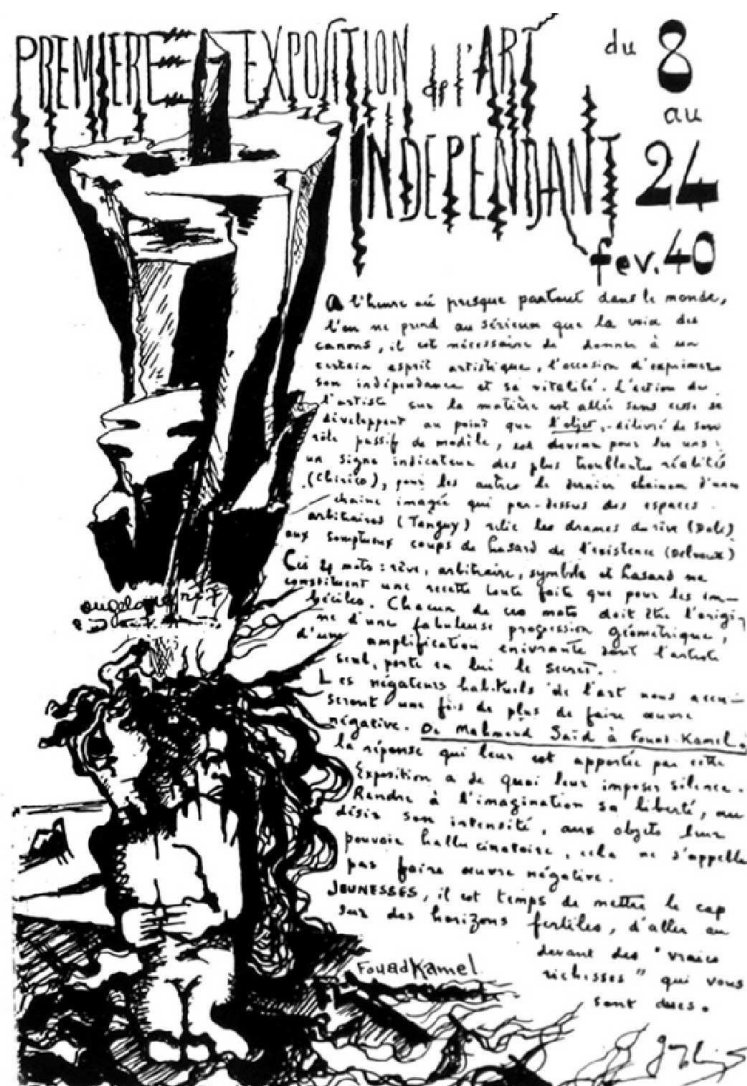 PREMIERE EXPOSITION de l'ART
INDEPENDANT
du 8
au
24
fev. 40
A l'heure où presque partout dans le monde,
l'on ne prend au sérieux que la voix des
canons, il est nécessaire de donner à un
certain esprit artistique, l'occasion d'exprimer
son indépendance et sa vitalité. L'action de
l'artiste sur la matière est allée sans cesse se
développent au point que l'objet, délivré de son
rôle passif de modèle, est devenu pour les uns
un signe indicateur des plus troublantes réalités
(Chirico), pour les autres le dernier chaînon d'une
chaine imagée qui par-dessus des espaces
arbitraires (Tanguy) relie les drames du rêve (Dali)
aux somptueux coups de hasard de l'existence (Delvaux)
Ces 4 mots : rêve, arbitraire, symbole et hasard ne
constituent une recette toute faite que pour les im-
béciles. Chacun de ces mots doit être l'origi-
ne d'une fabuleuse progression géométrique,
d'une amplification enivrante dont l'artiste
seul, porte en lui le secret.
Les négateurs habituels de l'art nous accu-
seront une fois de plus de faire œuvre
négative. De Mahmoud Saïd à Fouad Kamel
la réponse qui leur est apportée par cette
Exposition a de quoi leur imposer silence.
Rendre à l'imagination sa liberté, au
désir son intensité, aux objets leur
pouvoir hallucinatoire, cela ne s'appelle
pas faire œuvre négative.
JEUNESSES, il est temps de mettre le cap
sur des horizons fertiles, d'aller au
devant des "vraies
richesses" qui vous
sont dues.
Fouad Kamel